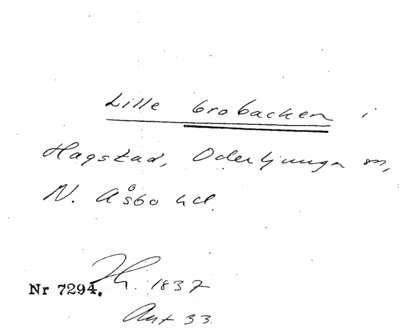 Lille brobacken i
Hagstad, Oderljunga sn,
N. Åsbo hd.
Nr 7294. Th. 1837
Ant 33.